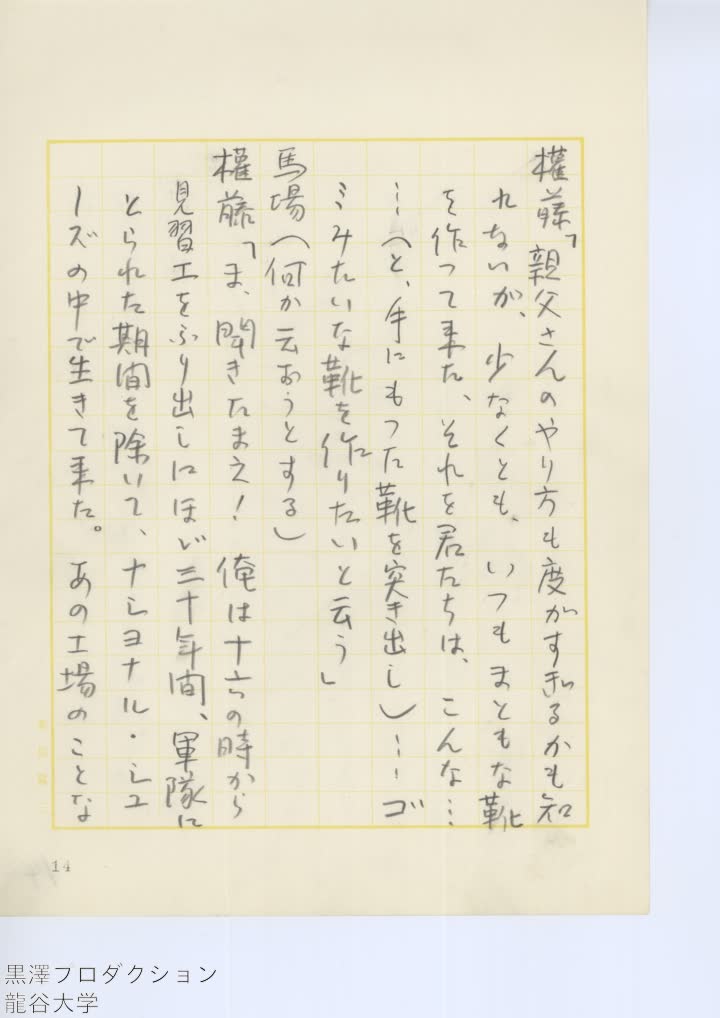 権藤「親父さんのやり方も度がすぎるかも知
れないが、少なくとも、いつもまともな靴
を作って来た、それを君たちは、こんな…
…(と、手にもった靴を突き出し)……ゴ
ミみたいな靴を作りたいと云う」
馬場(何か云おうとする)
権藤「ま、聞きたまえ！ 俺は十六の時から
見習工をふり出しにほゞ三十年間、軍隊に
とられた期間を除いて、ナショナル・シュ
ーズの中で生きて来た。 あの工場のことな
14
黒澤プロダクション
龍谷大学